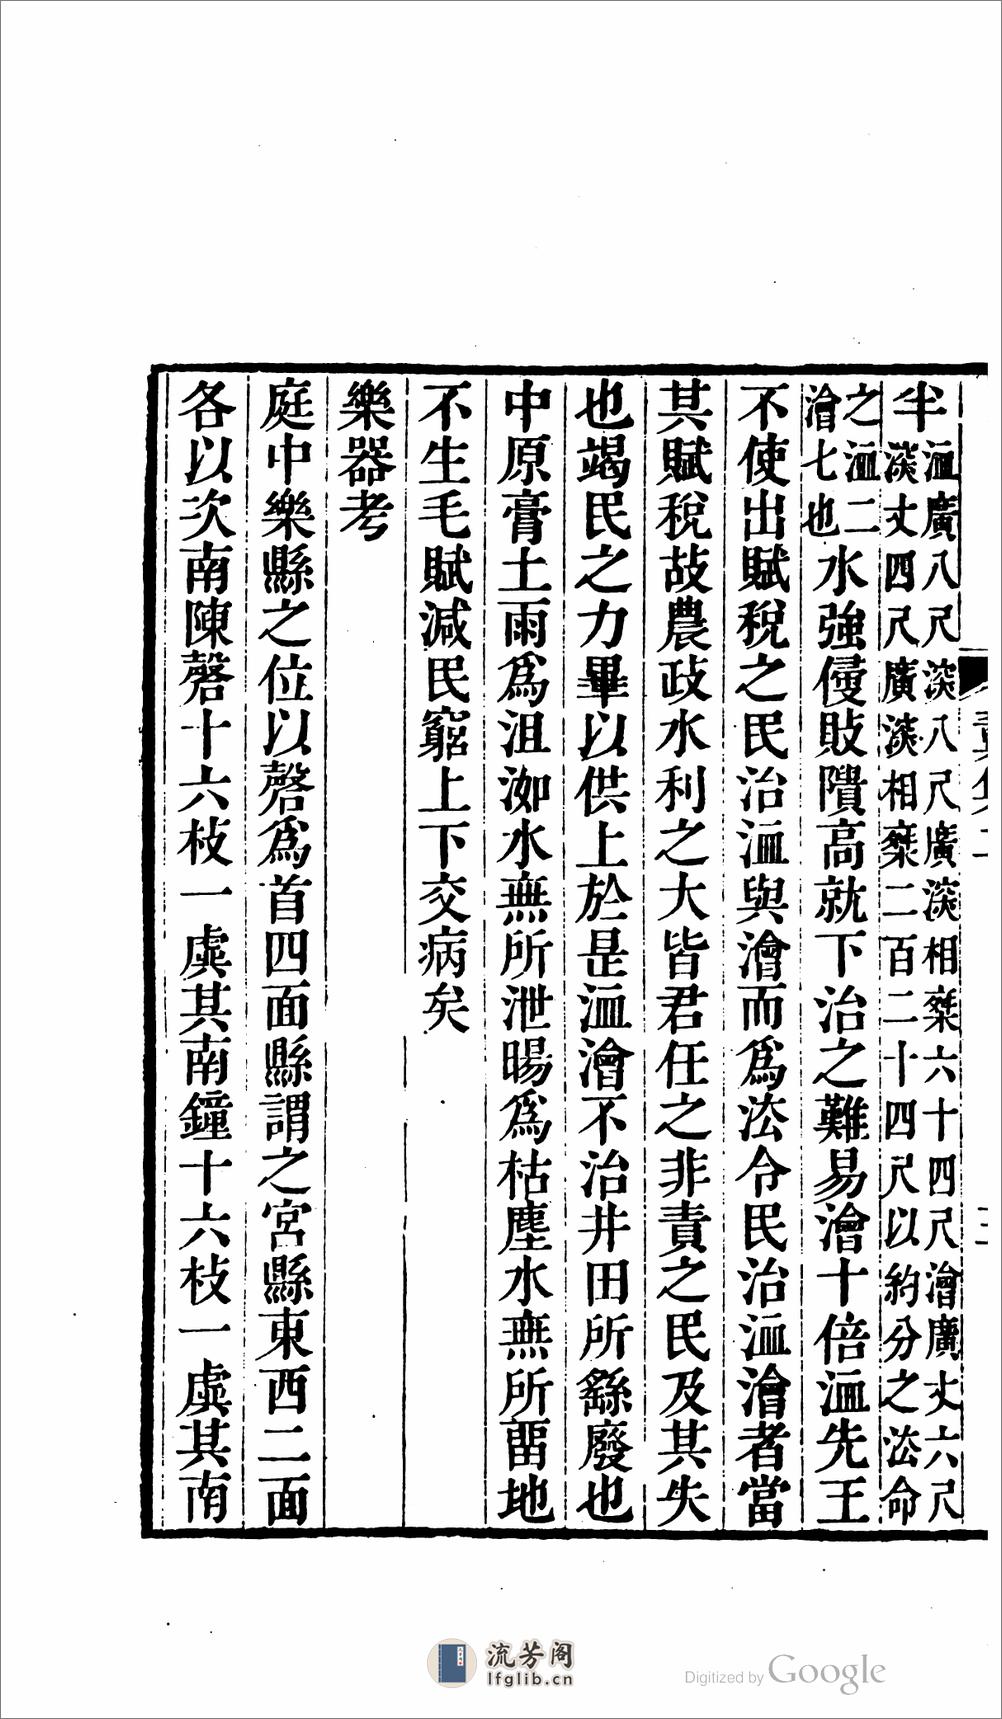 半洫廣八尺淡八尺廣淡相椉六十四尺澮廣丈六尺
淡丈四尺廣淡相椉二百二十四尺以約分之法命
之洫二
澮七也水強僈敗隤高就下治之難易澮十倍洫先王
不使出賦稅之民治洫與澮而爲法令民治洫澮者當
其賦稅故農政水利之大皆君任之非責之民及其失
也竭民之力畢以供上於是洫澮不治井田所繇廢也
中原膏土雨爲沮洳水無所泄暘爲枯塵水無所畱地
不生毛賦減民窮上下交病矣
樂器考
庭中樂縣之位以磬爲首四面縣謂之宮縣東西二面
各以次南陳磬十六枝一虡其南鐘十六枝一虡其南
流芳阁
lfglib.cn
Digitized by Google